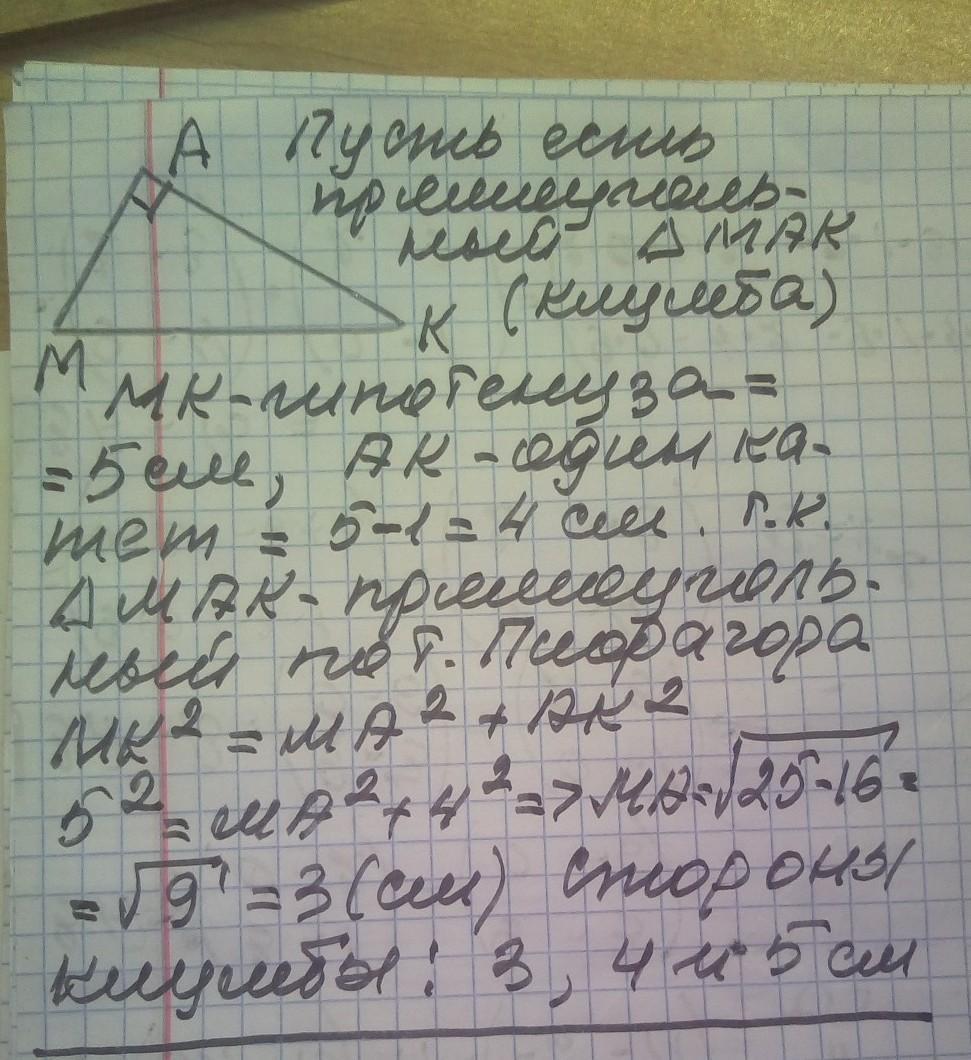 А Пусть есть
прямоуголь-
ный △ МАК
(клумба)
М К
МК-гипотенуза =
= 5 см, АК - один ка-
тет = 5-1 = 4 см. т.к.
△ МАК - прямоуголь-
ный по т. Пифагора
МК² = МА² + АК²
5² = МА² + 4² => МА = √25-16 =
= √9 = 3 (см) стороны
клумбы: 3, 4 и 5 см